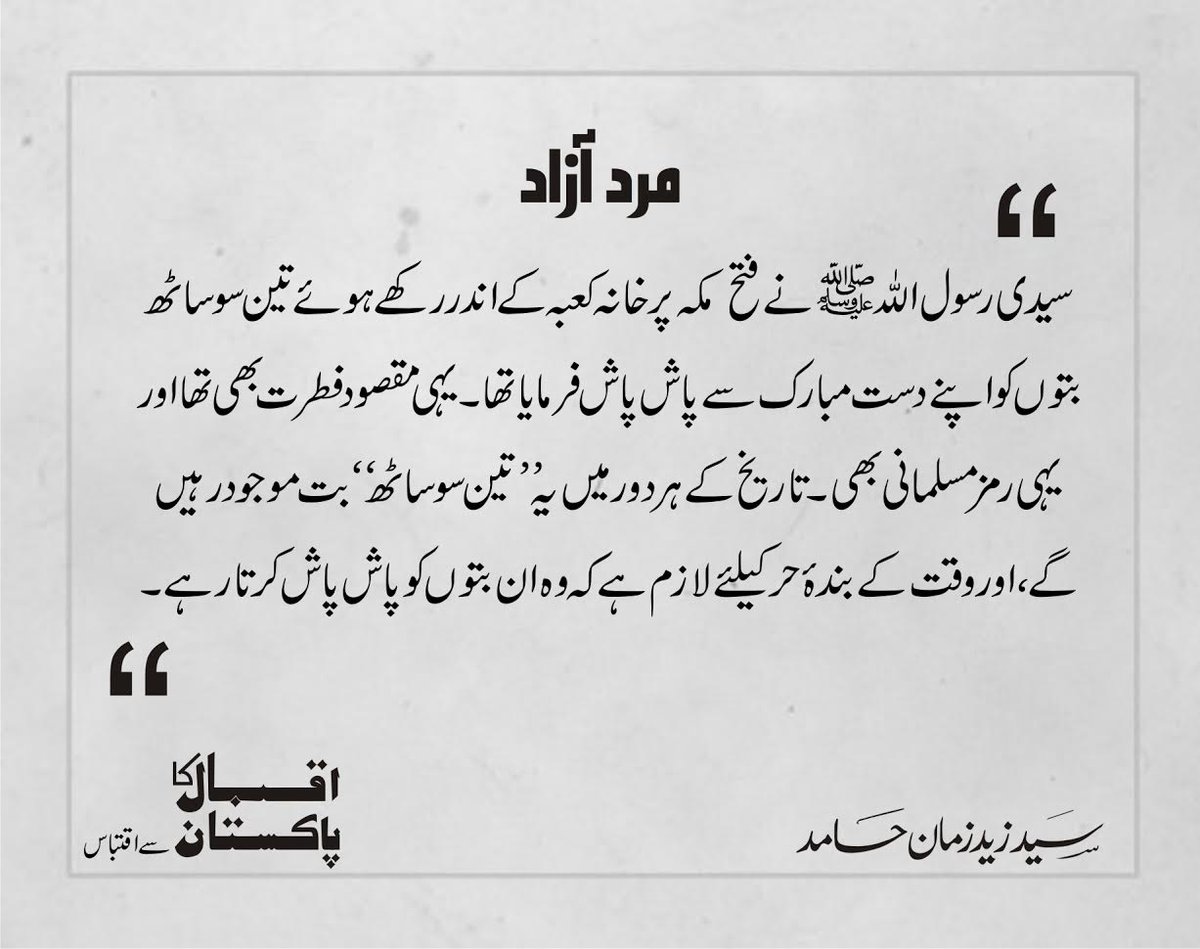 مرد آزاد
“
سیدی رسول اللہ ﷺ نے فتح مکہ پر خانہ کعبہ کے اندر رکھے ہوئے تین سو ساٹھ
بتوں کو اپنے دست مبارک سے پاش پاش فرمایا تھا۔ یہی مقصود فطرت بھی تھا اور
یہی رمز مسلمانی بھی۔ تاریخ کے ہر دور میں یہ ”تین سو ساٹھ“ بت موجود رہیں
گے، اور وقت کے بندۂ حر کیلئے لازم ہے کہ وہ ان بتوں کو پاش پاش کرتا رہے۔
“
سید زید زمان حامد
اقبال کا
پاکستان سے اقتباس